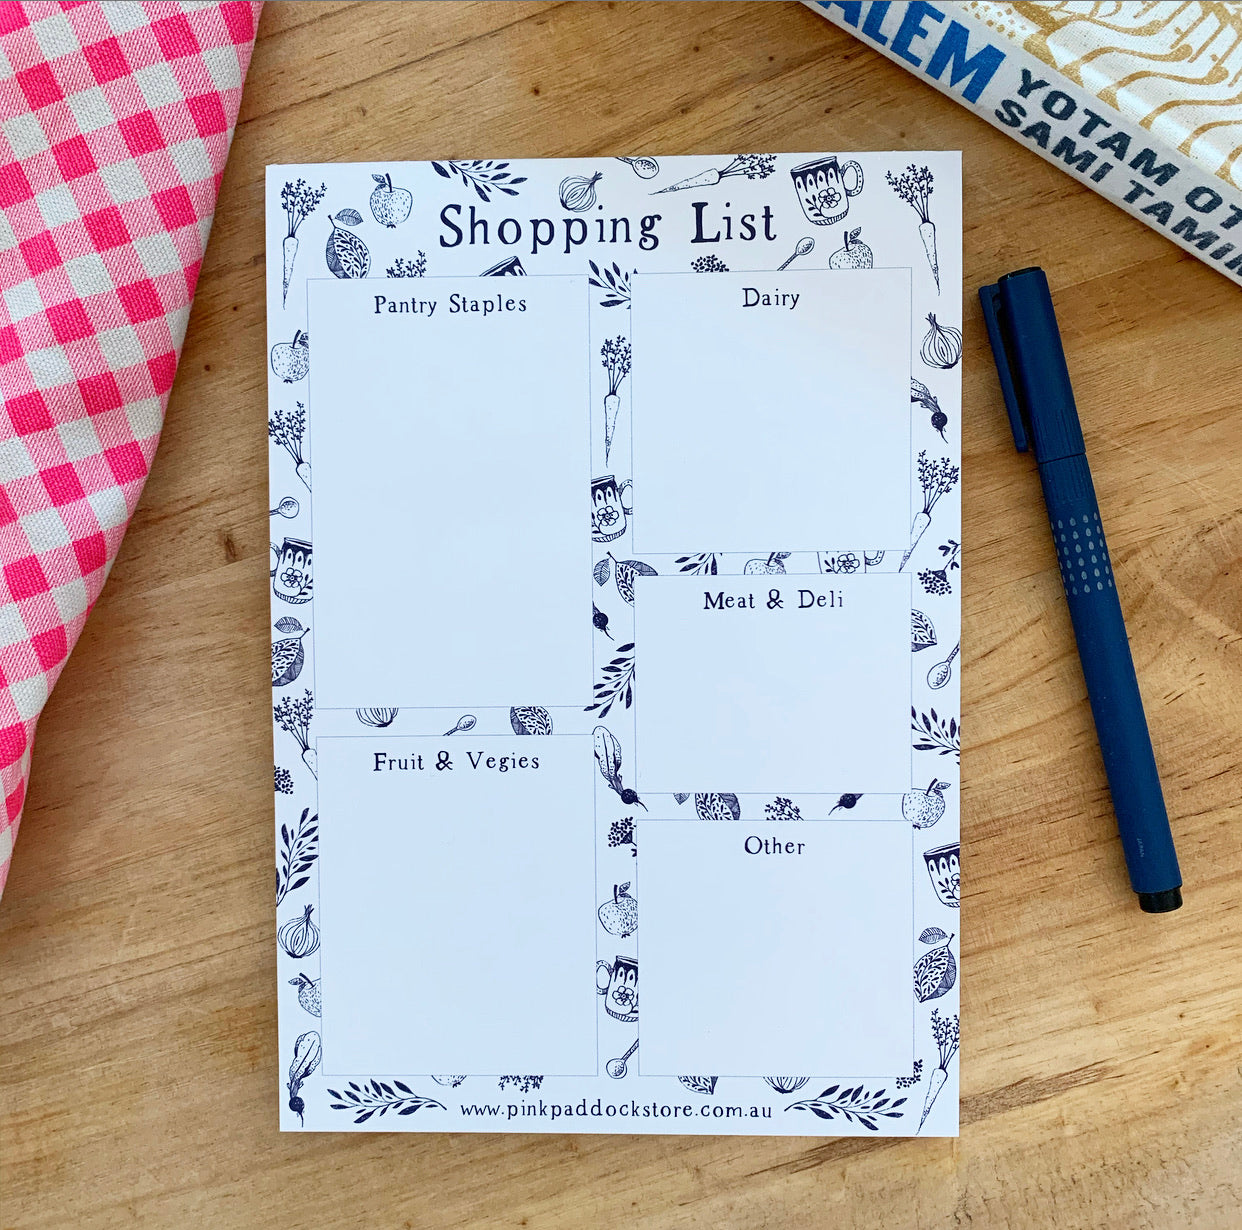 ALEM
YOTAM OT
SAMI TAMIM
Shopping List
Pantry Staples
Dairy
Meat & Deli
Fruit & Vegies
Other
www.pinkpaddockstore.com.au
JAPAN